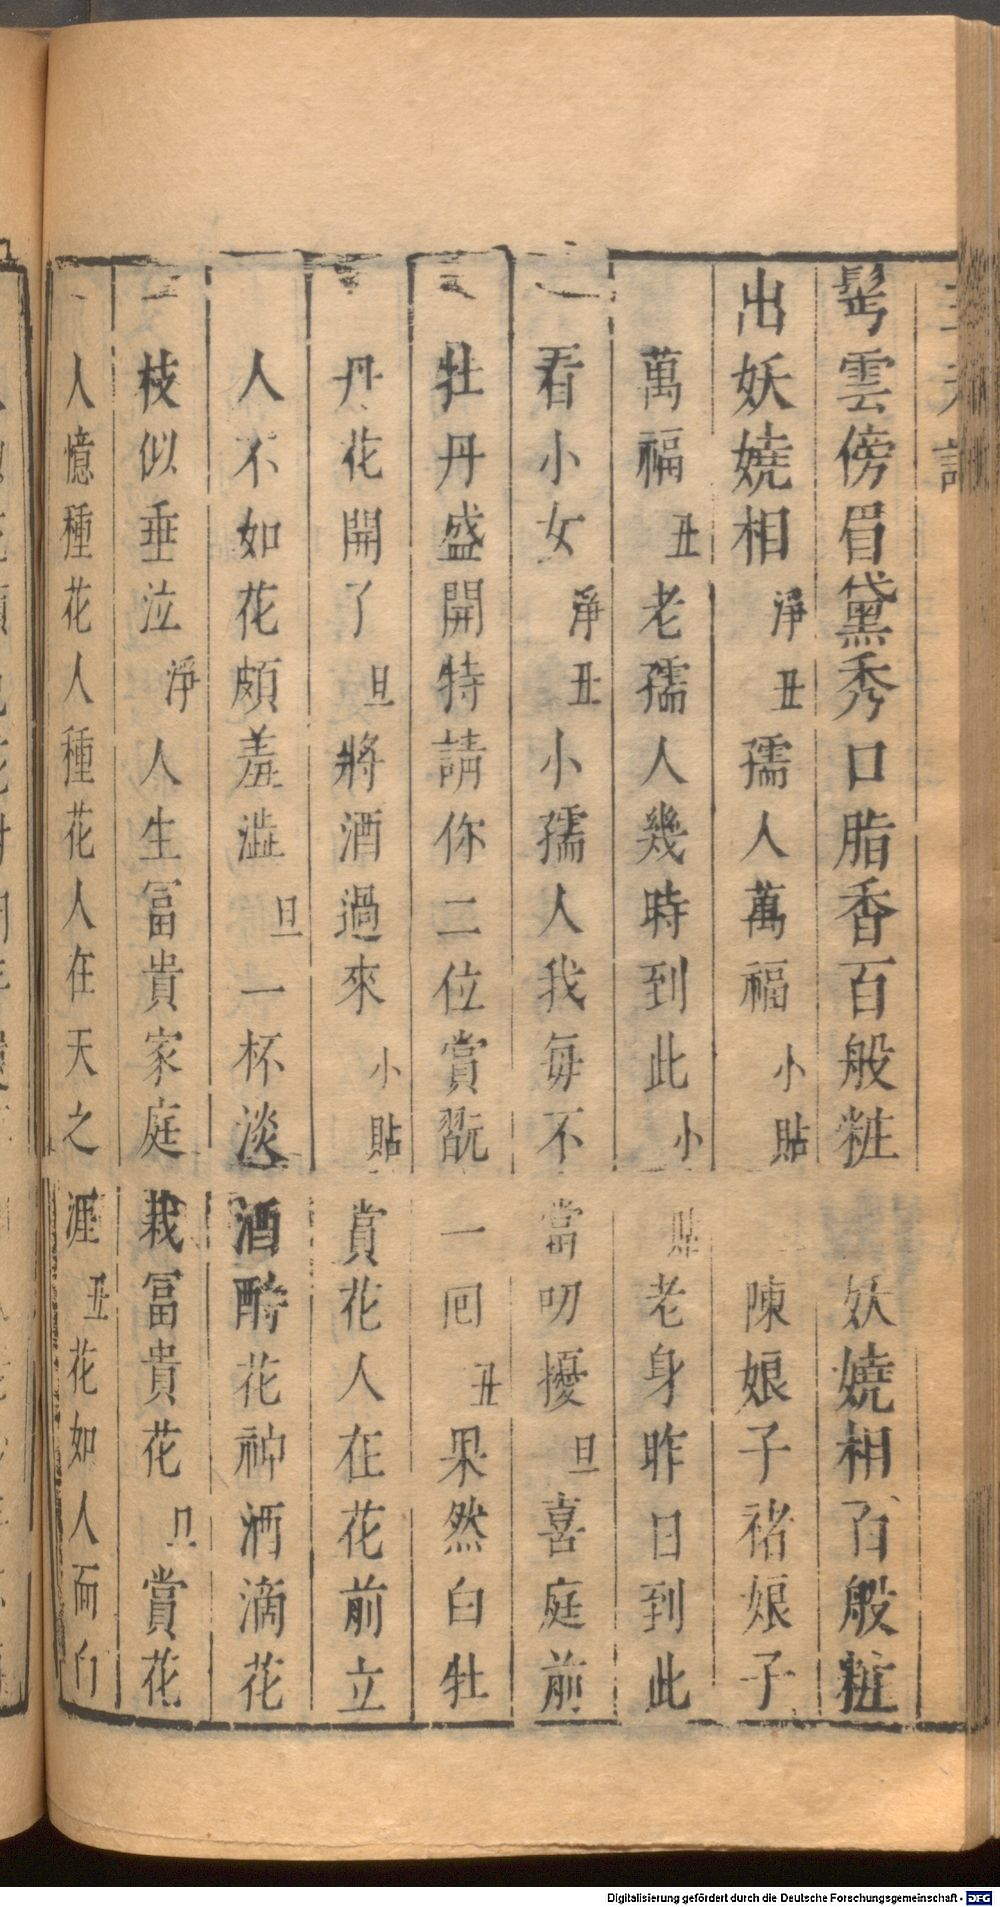 髩雲傍眉黛秀口脂香百般粧 妖嬈相百般粧
出妖嬈相淨丑孺人萬福小貼 陳娘子褚娘子
萬福丑老孺人幾時到此小貼老身昨日到此
看小女淨丑小孺人我每不當叨擾旦喜庭前
牡丹盛開特請你二位賞翫一囘丑果然白牡
丹花開了旦將酒過來小貼賞花人在花前立
人不如花頗羞澁旦一杯淡酒酹花神洒滴花
枝似垂泣淨人生冨貴家庭栽冨貴花旦賞花
人憶種花人種花人在天之涯丑花如人面白
Digitalisierung gefördert durch die Deutsche Forschungsgemeinschaft - DFG